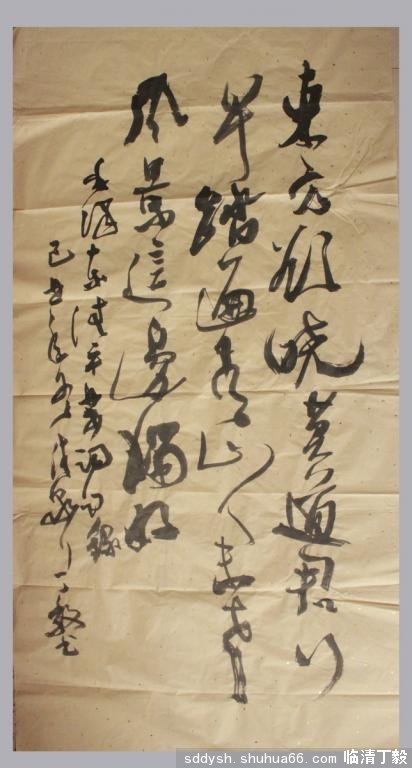 東方欲晓莫道君行
早踏遍青山人未老
風景這邊獨好
毛澤東清平樂詞句錄
己丑年丁毅书
sddysh.shuhua66.com 临清丁毅